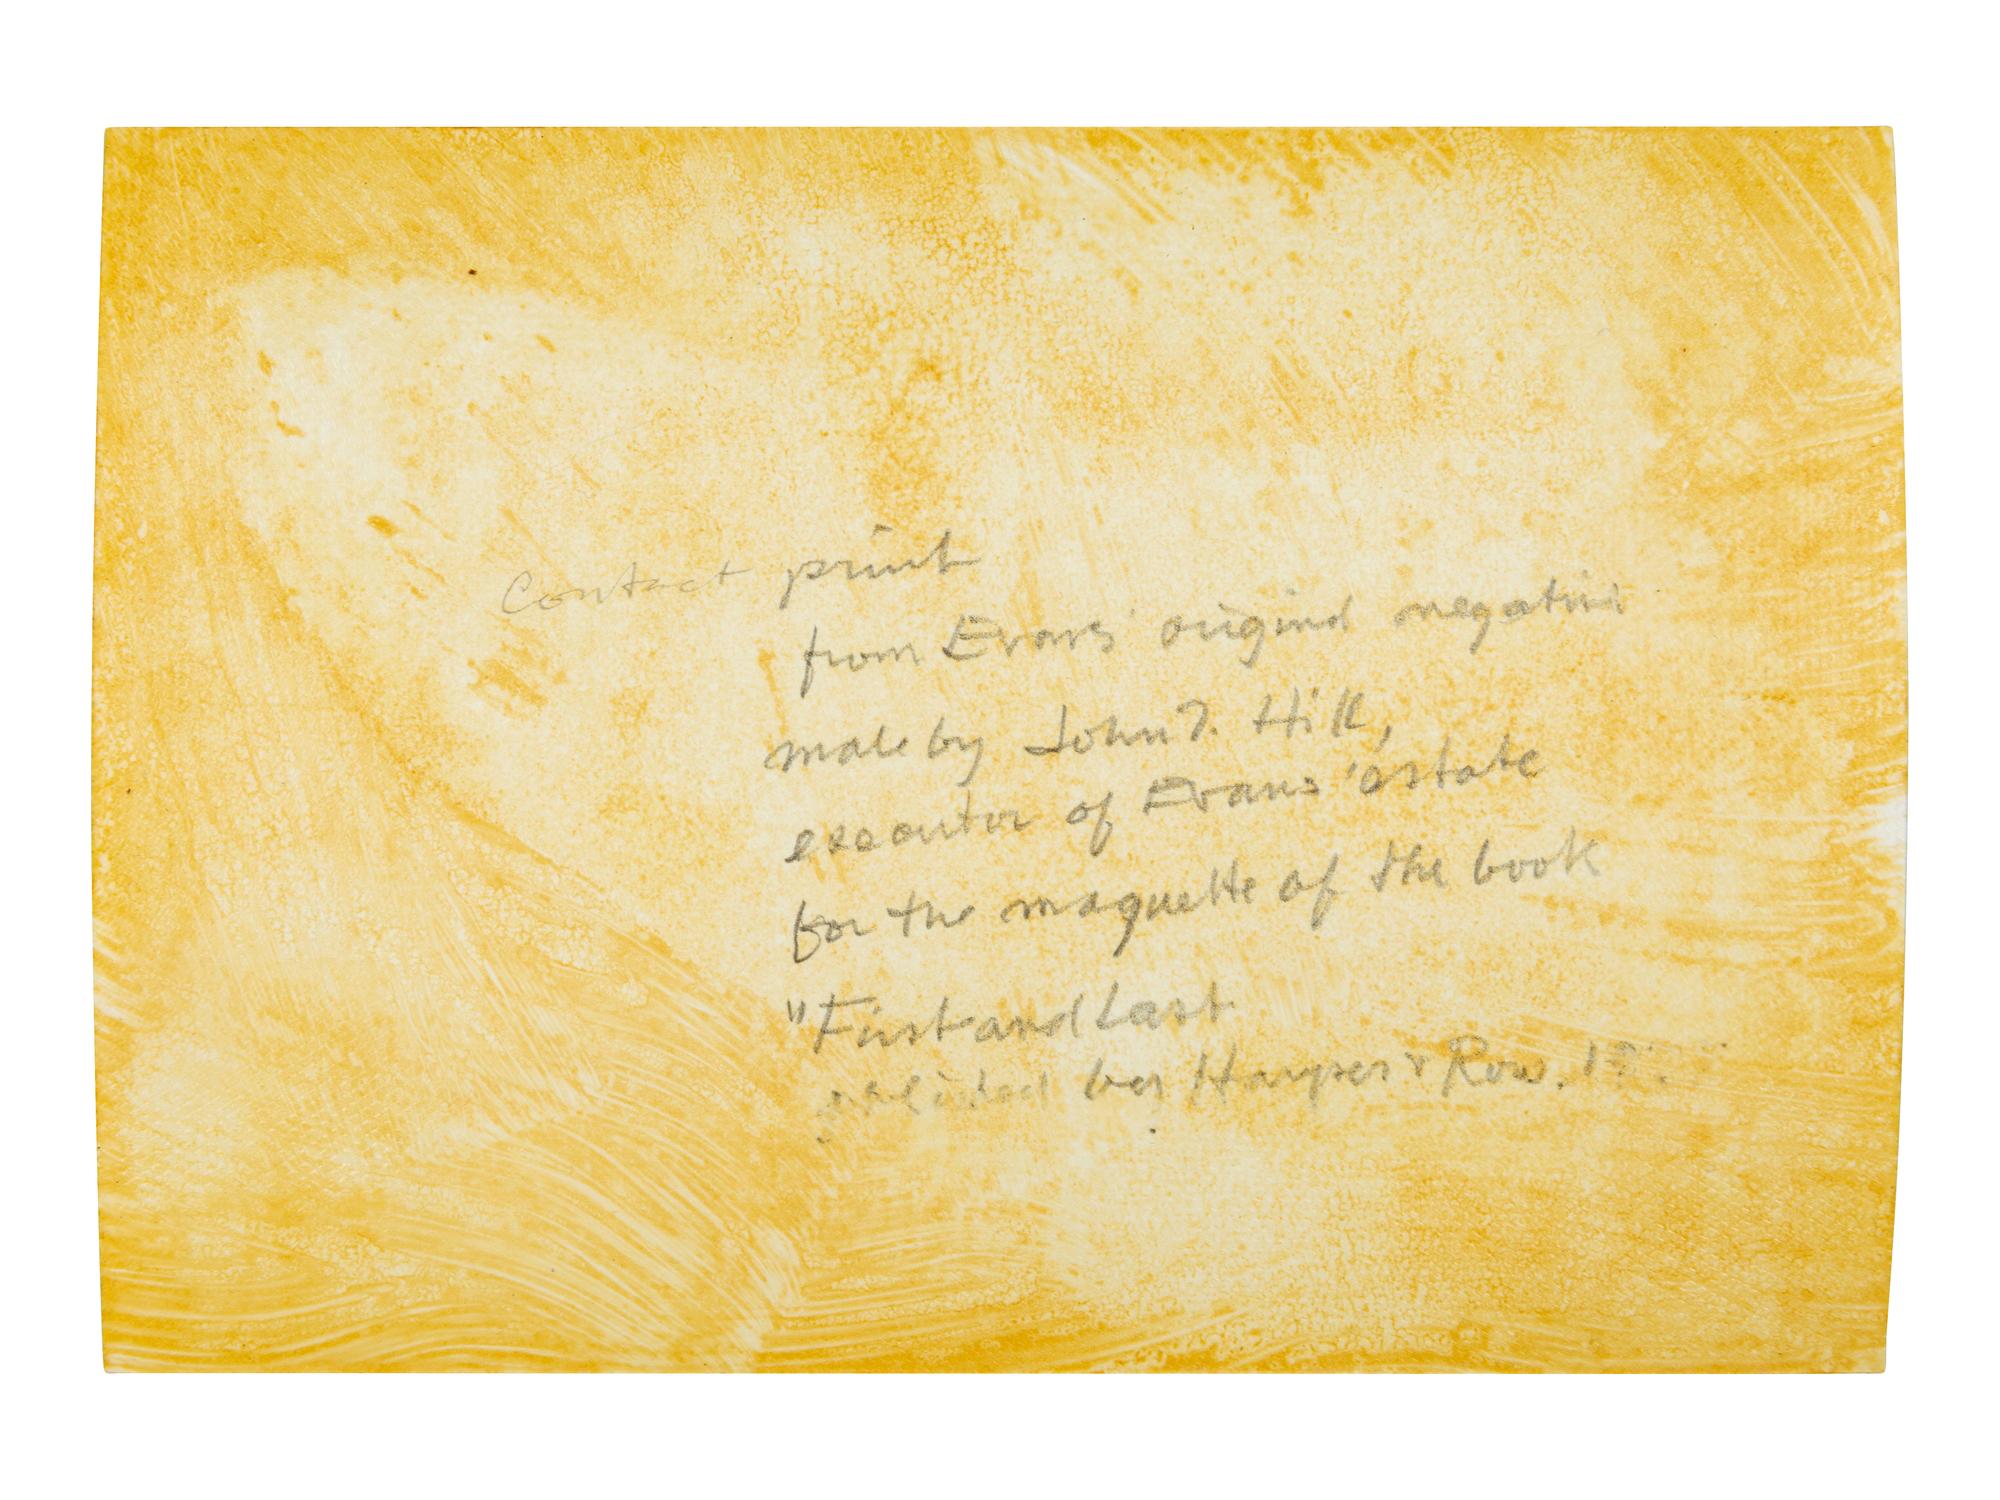 Contact print
from Evans' original negative
made by John T. Hill,
executor of Evans' estate
for the maquette of the book
"First and Last
published by Harper & Row.